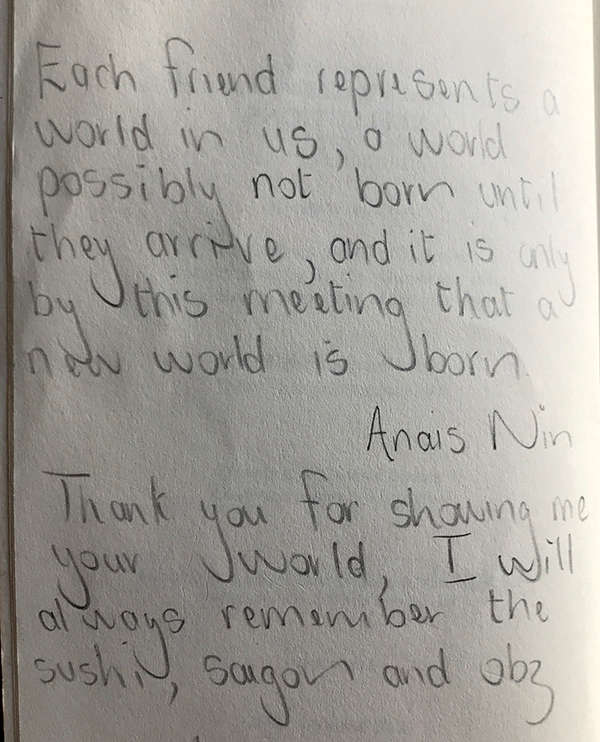 Each friend represents a
world in us, a world
possibly not born until
they arrive, and it is only
by this meeting that a
new world is born.
Anais Nin
Thank you for showing me
your world, I will
always remember the
sushi, saigon and obz